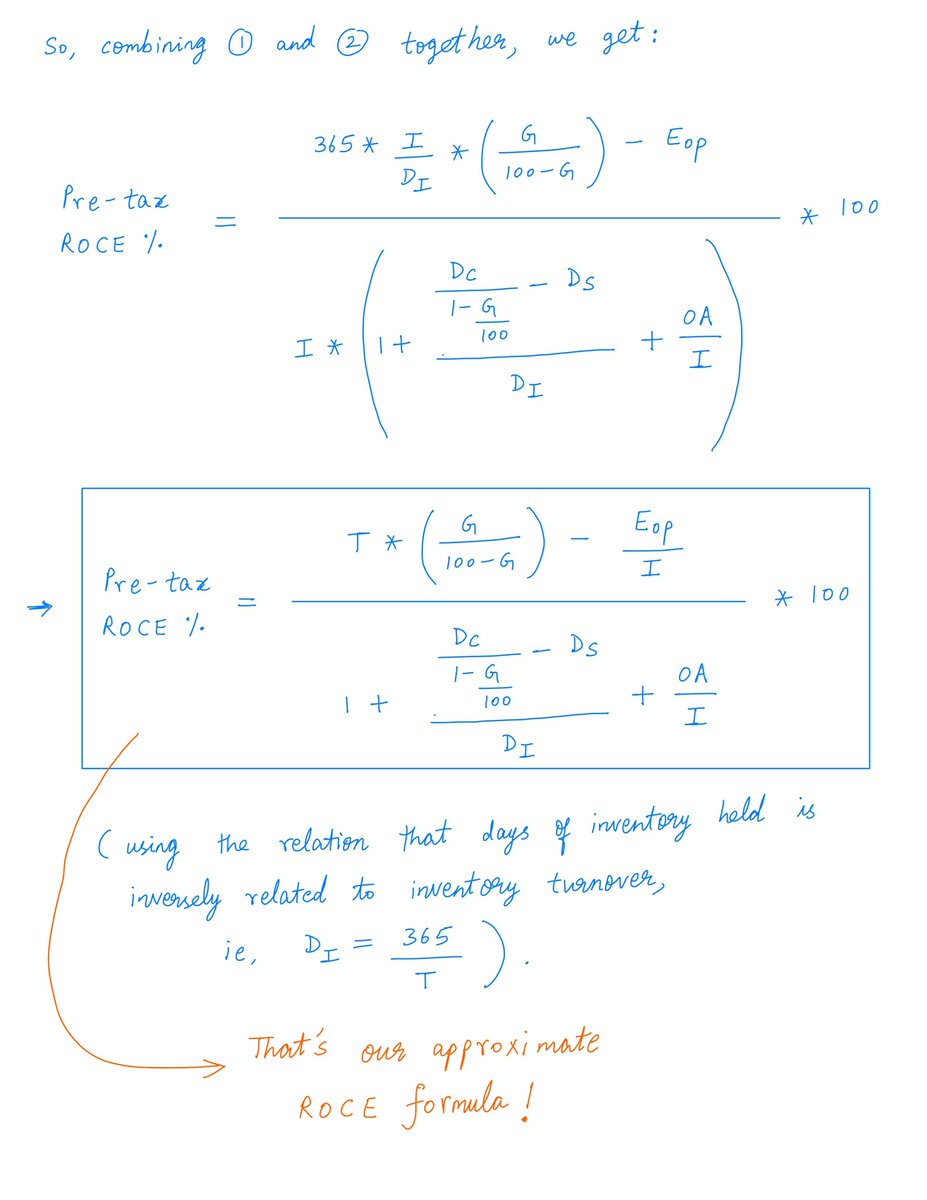 So, combining ① and ② together, we get:
Pre-tax ROCE % = (365 * I/D_I * (G/(100-G)) - E_op) / (I * (1 + (D_C/(1-G/100) - D_S)/D_I + OA/I)) * 100
→ Pre-tax ROCE % = (T * (G/(100-G)) - E_op/I) / (1 + (D_C/(1-G/100) - D_S)/D_I + OA/I) * 100
(using the relation that days of inventory held is
inversely related to inventory turnover,
ie, D_I = 365/T).
That's our approximate
ROCE formula!